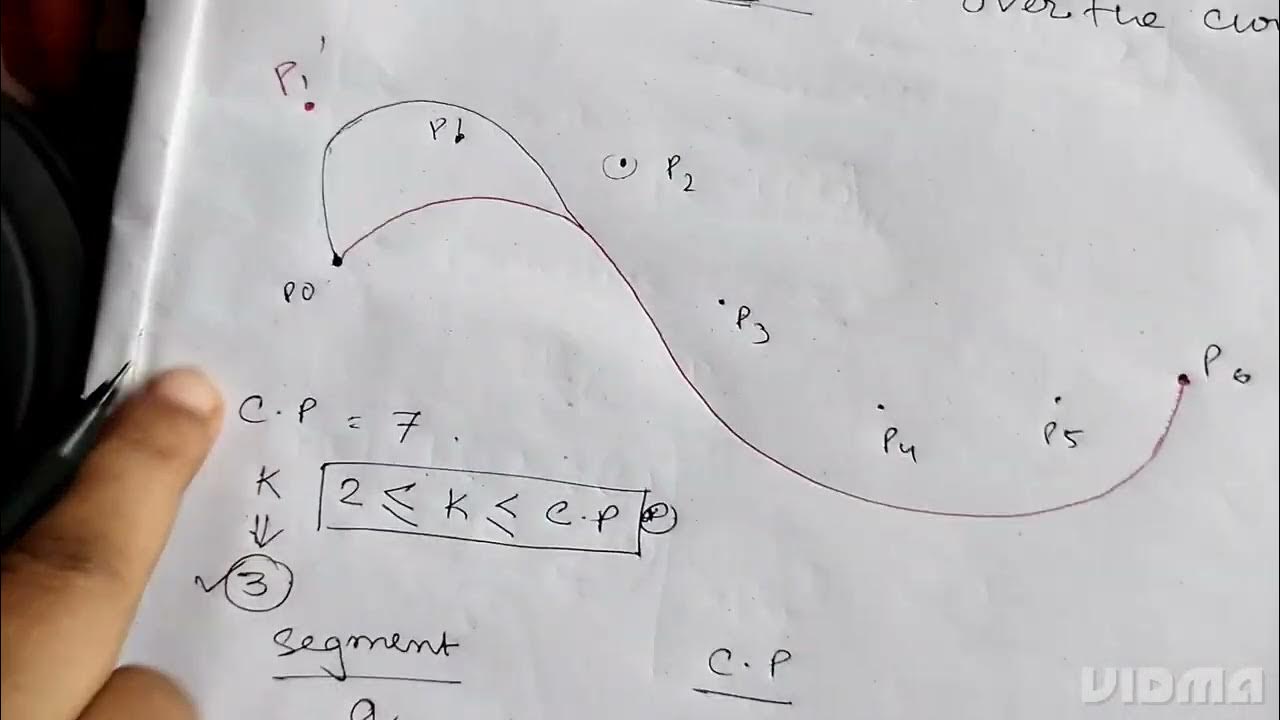 over the
P1'
P1
P2
P0
P3
P6
C.P = 7.
P4
P5
K
2 ≤ K ≤ C.P
⇓
3
segment
C.P
VIDMA